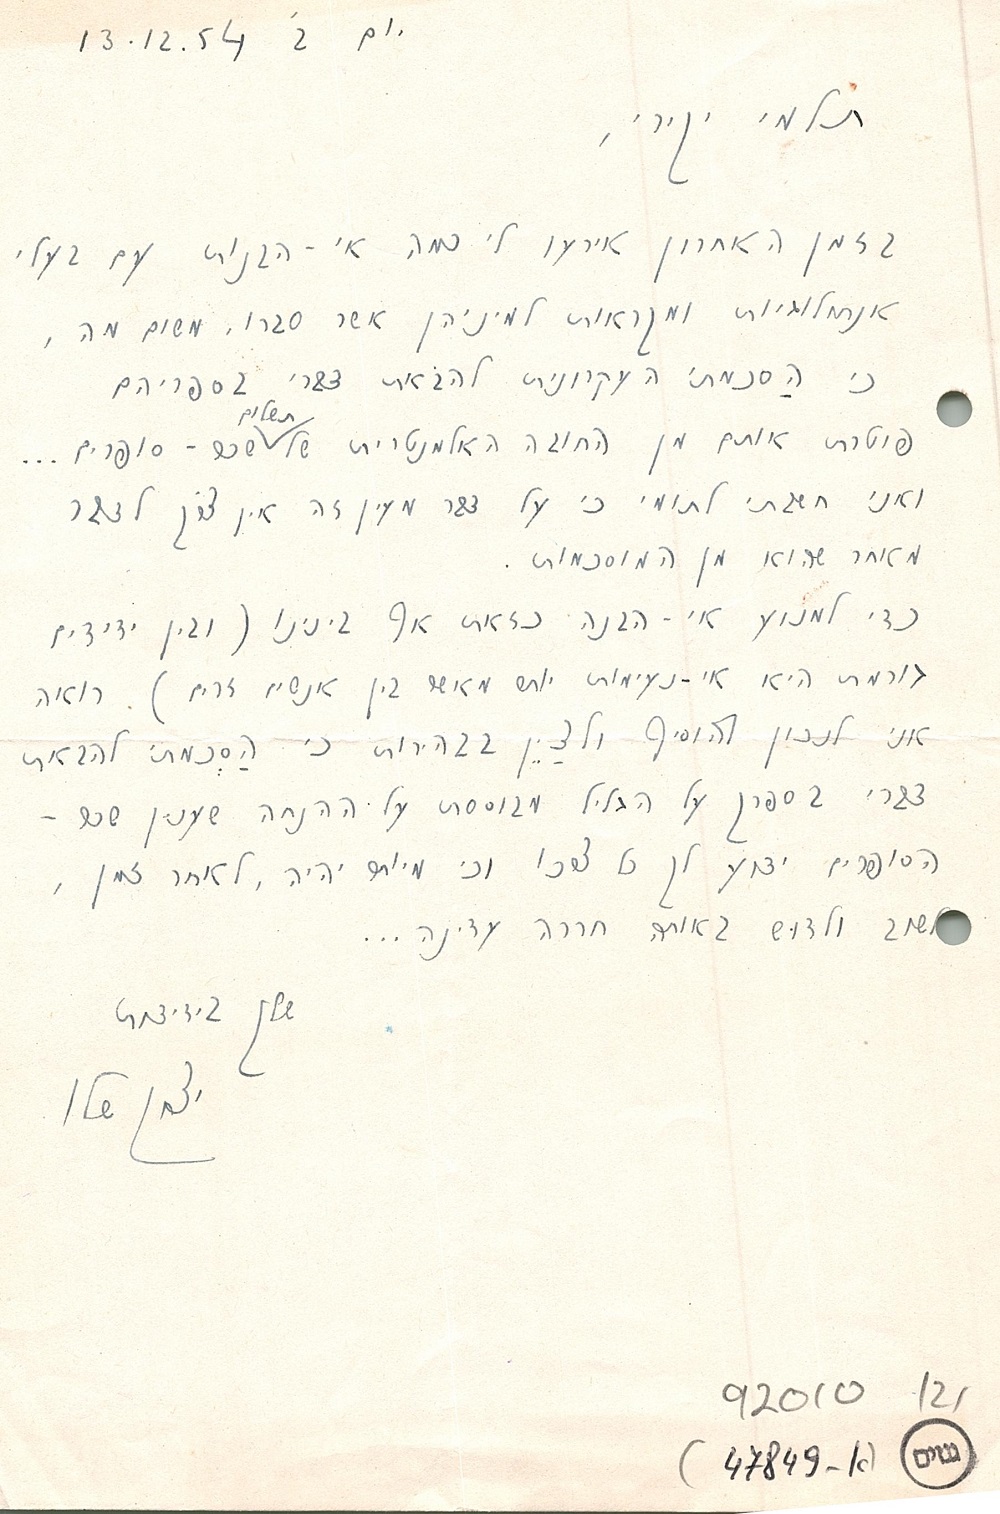 יום ב' 13.12.54
תלמי יקירי,
בזמן האחרון אירעו לי כמה אי-הבנות עם בעלי
אנתולוגיות ומקראות למיניהן אשר סברו, משום מה,
כי הַסכמתי העקרונית להבאת דברי בספריהם
תשלום
פוטרת אותם מן החובה האלמנטרית של שכר-סופרים...
ואני חשבתי לתומי כי על דבר מעין זה אין צרך לדבר
מאחר שהוא מן המוסכמות.
כדי למנוע אי-הבנה כזאת אף בינינו (ובין ידידים
גורמת היא אי-נעימות יותר מאשר בין אנשים זרים). רואה
אני לנכון להוסיף ולצַיֵן בבהירות כי הַסְכמתי להבאת
דברי בספרך על הגליל מבוססת על ההנחה שענין שכר-
הסופרים ידוע לך כל צרכו וכי מיותר יהיה, לאחר זמן,
לשוב ולדוש באותה חררה עדינה...
שלך בידידות
יצחק שלו
121 92010
(47849-א)